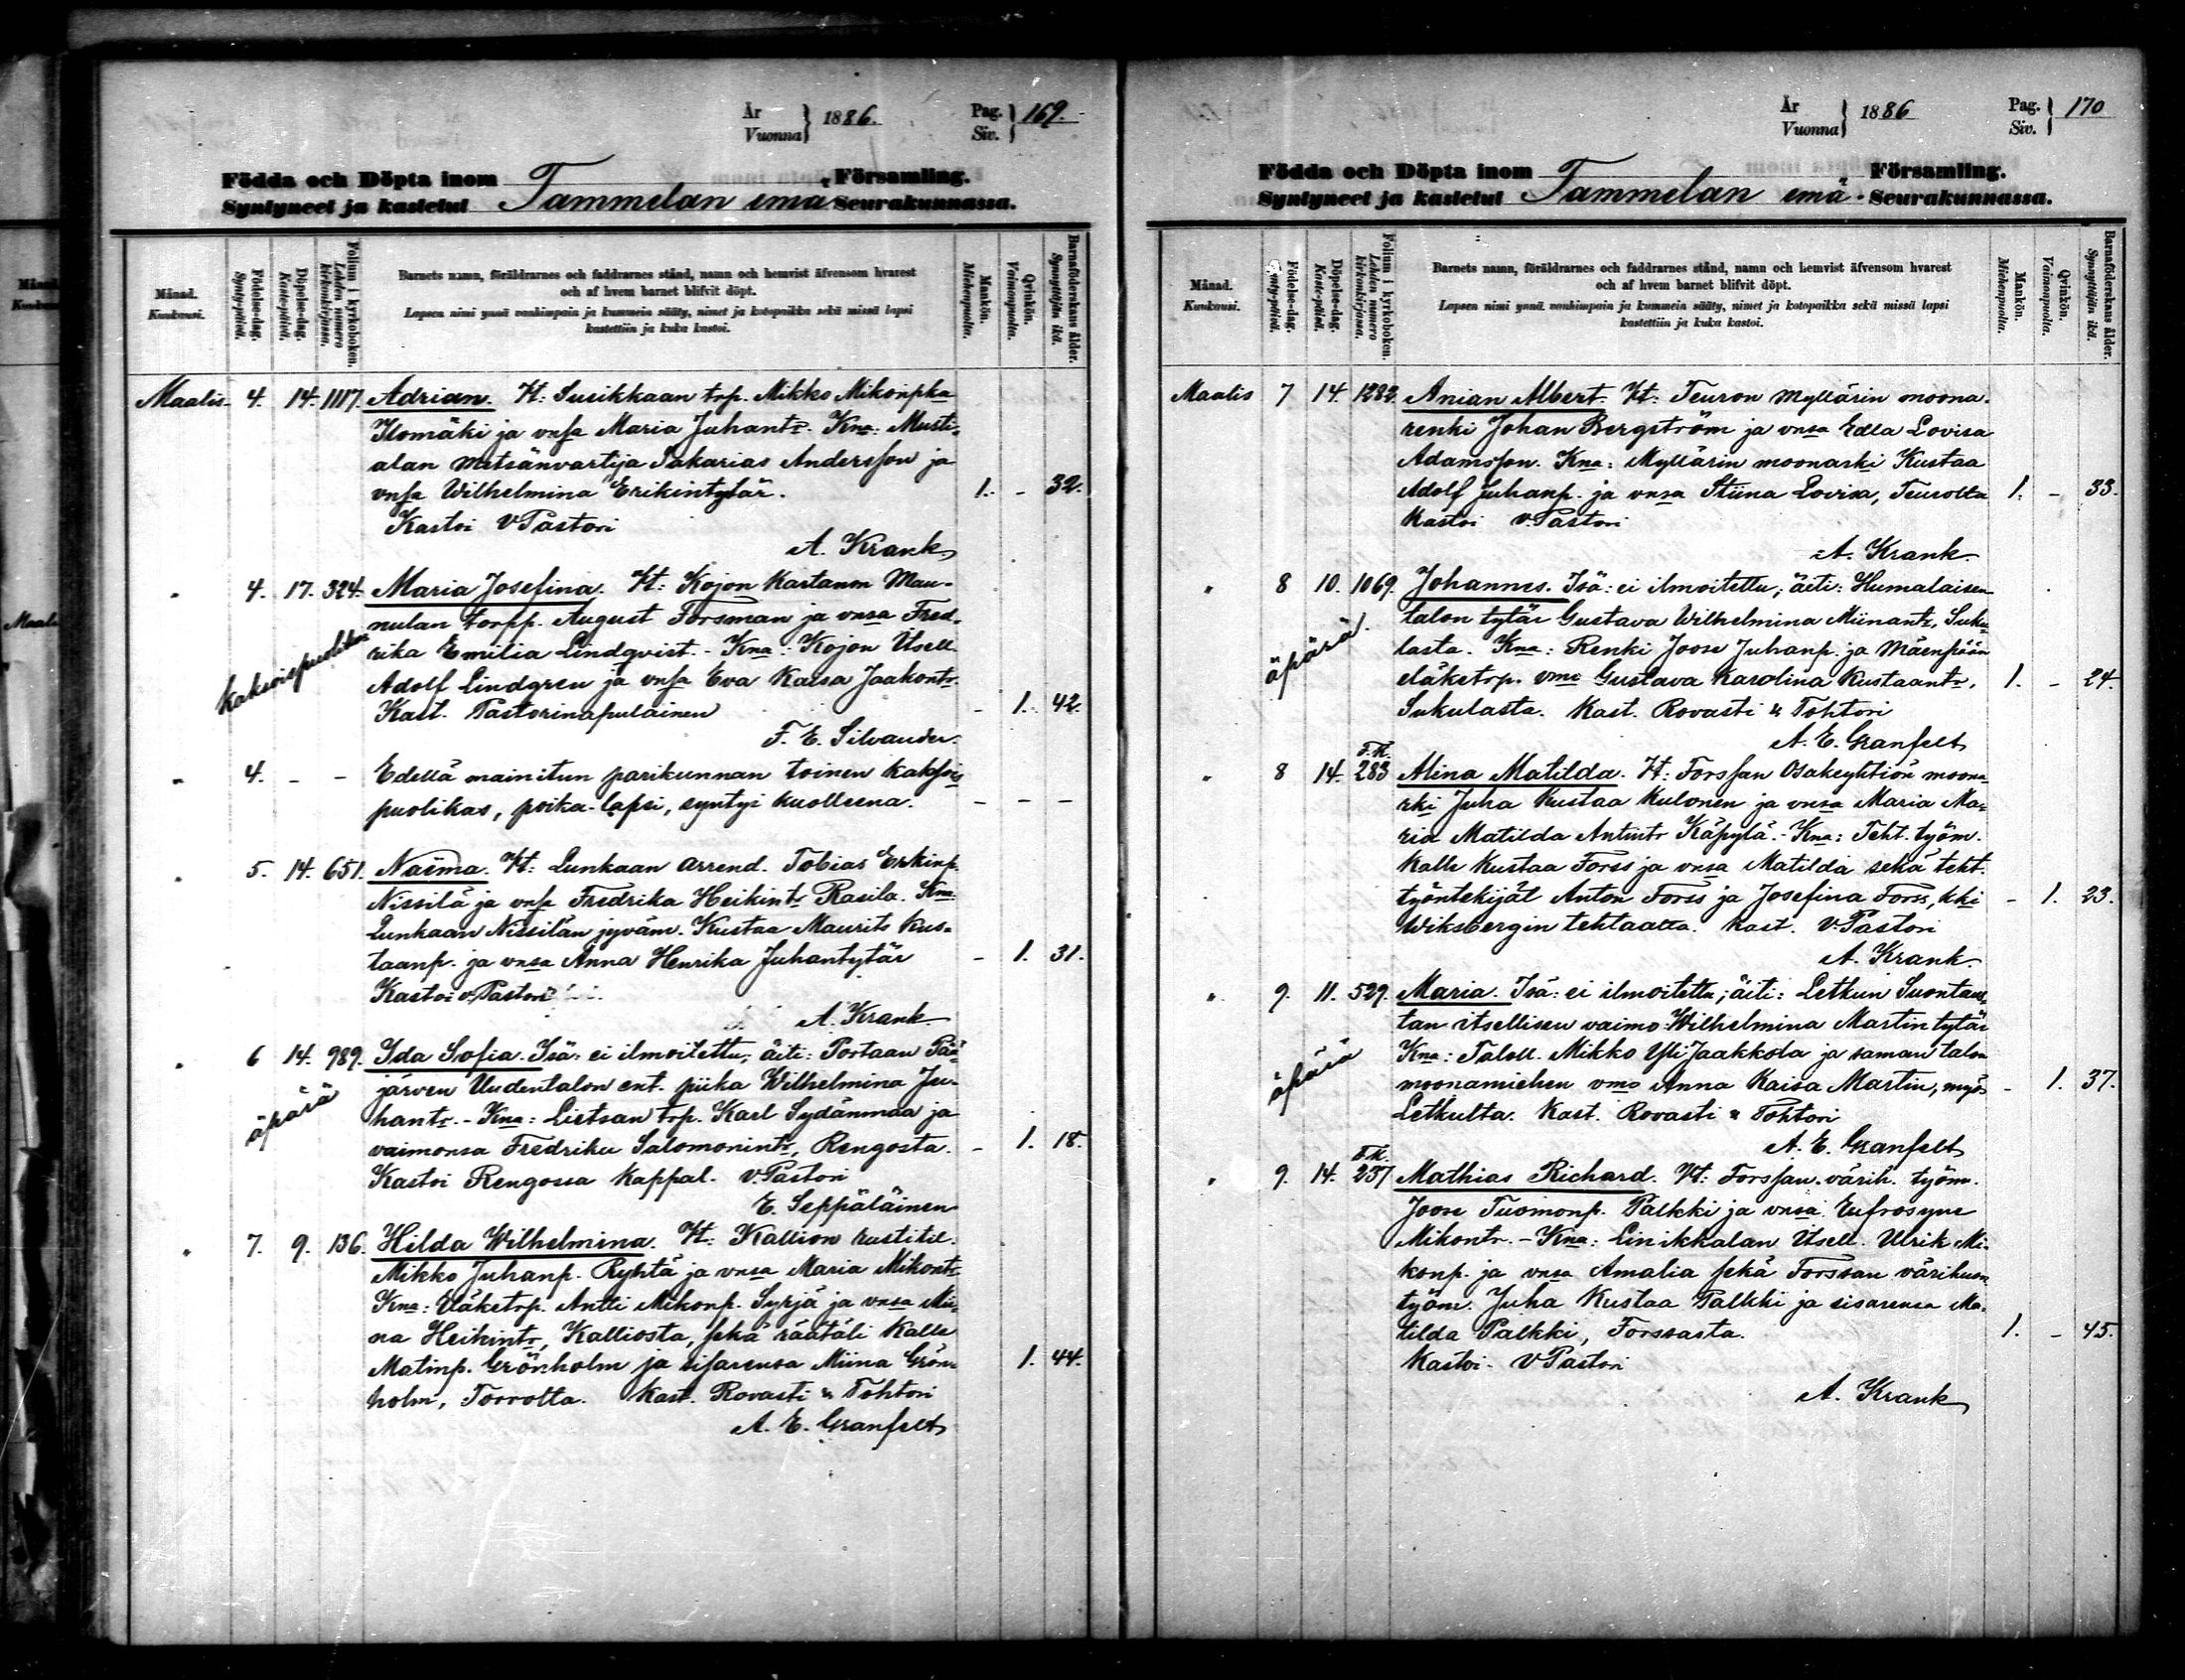 År
Vuonna } 1886. Pag.
Siv. } 169.
Födda och Döpta inom Församling.
Syntyneet ja kastetut Tammelan emä Seurakunnassa.
Månad.
Kuukausi.
Födelse-dag.
Synty-päivä.
Döpelse-dag.
Kaste-päivä.
Folium i kyrkoboken.
Lehden numero kirkonkirjassa.
Barnets namn, föräldrarnes och faddrarnes stånd, namn och hemvist äfvensom hvarest
och af hvem barnet blifvit döpt.
Lapsen nimi ynnä vanhimpain ja kummein sääty, nimet ja kotopaikka sekä missä lapsi
kastettiin ja kuka kastoi.
Mankön.
Miehenpuolta.
Qvinkön.
Vaimonpuolta.
Barnaföderskans ålder.
Synnyttäjän ikä.
Maalis 4. 14. 1117. Adrian. Vt: Susikkaan trp. Mikko Mikonpka
Ilomäki ja vnsa Maria Juhantr. Kna: Musti-
alan metsänvartija Sakarias Andersson ja
vnsa Wilhelmina Erikintytär. 1. - 32.
Kastoi v Pastori
A. Krank
" 4. 17. 324. Maria Josefina. Vt: Kojon Kartanon Mau-
nulan torpp. August Forsman ja vnsa Fred-
rika Emilia Lindqvist. - Kna: Kojon Itsell.
Adolf Lindgren ja vnsa Eva Kaisa Jaakontr.
Kast. Pastorinapulainen - 1. 42.
F. E. Silvander.
" 4. - - Edellä mainitun parikunnan toinen kaksois
puolikas, poika-lapsi, syntyi kuolleena. - - -
" 5. 14. 651. Naima. Vt: Lunkaan arrend. Tobias Erkinp.
Nissilä ja vnsa Fredrika Heikintr Rasila. Kna:
Lunkaan Nissilän jyväm. Kustaa Maurits Kus-
taanp. ja vnsa Anna Henrika Juhantytär - 1. 31.
Kastoi v. Pastori
A. Krank
" 6 14. 989. Ida Sofia. Isä: ei ilmoitettu, äiti: Portaan Pää
äpärä
järven Uudentalon ent. piika Wilhelmina Ju-
hantr. - Kna: Lietsan trp. Karl Sydänmaa ja
vaimonsa Fredrika Salomonintr, Rengosta. - 1. 18.
Kastoi Rengossa Kappal. v. Pastori
E. Seppäläinen
" 7. 9. 136. Hilda Wilhelmina. Vt: Kallion rustitil.
Mikko Juhanp. Ryhtä ja vnsa Maria Mikontr
Kna: Eläketrp. Antti Mikonp. Syrjä ja vnsa Mii-
na Heikintr, Kalliosta, sekä räätäli Kalle
Matinp. Grönholm ja sisarensa Miina Grön- 1. 44.
holm, Torrolta. Kast. Rovasti & Tohtori
A. E. Granfelt
År
Vuonna } 1886 Pag.
Siv. } 170
Födda och Döpta inom Församling.
Syntyneet ja kastetut Tammelan emä - Seurakunnassa.
Månad.
Kuukausi.
Födelse-dag.
Synty-päivä.
Döpelse-dag.
Kaste-päivä.
Folium i kyrkoboken.
Lehden numero kirkonkirjassa.
Barnets namn, föräldrarnes och faddrarnes stånd, namn och hemvist äfvensom hvarest
och af hvem barnet blifvit döpt.
Lapsen nimi ynnä vanhimpain ja kummein sääty, nimet ja kotopaikka sekä missä lapsi
kastettiin ja kuka kastoi.
Mankön.
Miehenpuolta.
Qvinkön.
Vaimonpuolta.
Barnaföderskans ålder.
Synnyttäjän ikä.
Maalis 7 14. 1282. Anian Albert. Vt: Teuron Myllärin moona-
renki Johan Bergström ja vnsa Edla Lovisa
Adamsson. Kna: Myllärin moonarki Kustaa
Adolf Juhanp. ja vnsa Stiina Lovisa, Teurolta 1. - 33.
Kastoi v. Pastori
A. Krank
" 8 10. 1069. Johannes. Isä: ei ilmoitettu, äiti: Humalaisen
äpärä
talon tytär Gustava Wilhelmina Miinantr, Suku-
lasta. Kna: Renki Joose Juhanp. ja Mäenpään
eläketrp. vmo Gustava Karolina Kustaantr, 1. - 24.
Sukulasta. Kast. Rovasti & Tohtori
A. E. Granfelt
" 8 14. 283 Alina Matilda. Vt: Forssan Osakeyhtiön moona-
rki Juha Kustaa Kulonen ja vnsa Maria Ma-
ria Matilda Antintr Käpylä. - Kna: Teht. työm.
Kalle Kustaa Forss ja vnsa Matilda sekä teht.
työntekijät Anton Forss ja Josefina Forss, kki - 1. 23.
Wiksbergin tehtaalta. Kast. v. Pastori
A. Krank
" 9. 11. 529. Maria. Isä: ei ilmoitettu; äiti: Letkun Suontaus-
tan itsellisen vaimo Wilhelmina Martintytär
äpärä
Kna: Taloll. Mikko Yli Jaakkola ja saman talon
moonamiehen vmo Anna Kaisa Martin, myös - 1. 37.
Letkulta. Kast. Rovasti & Tohtori
A. E. Granfelt
" 9. 14. 237 Mathias Richard. Vt: Forssan värih. työm.
Joose Tuomonp. Palkki ja vnsa Eufrosyne
Mikontr. - Kna: Linikkalan Itsell. Ulrik Mi-
konp. ja vnsa Amalia sekä Forssan värihuon.
työm. Juha Kustaa Palkki ja sisarensa Ma-
tilda Palkki, Forssasta. 1. - 45.
Kastoi - v Pastori
A. Krank